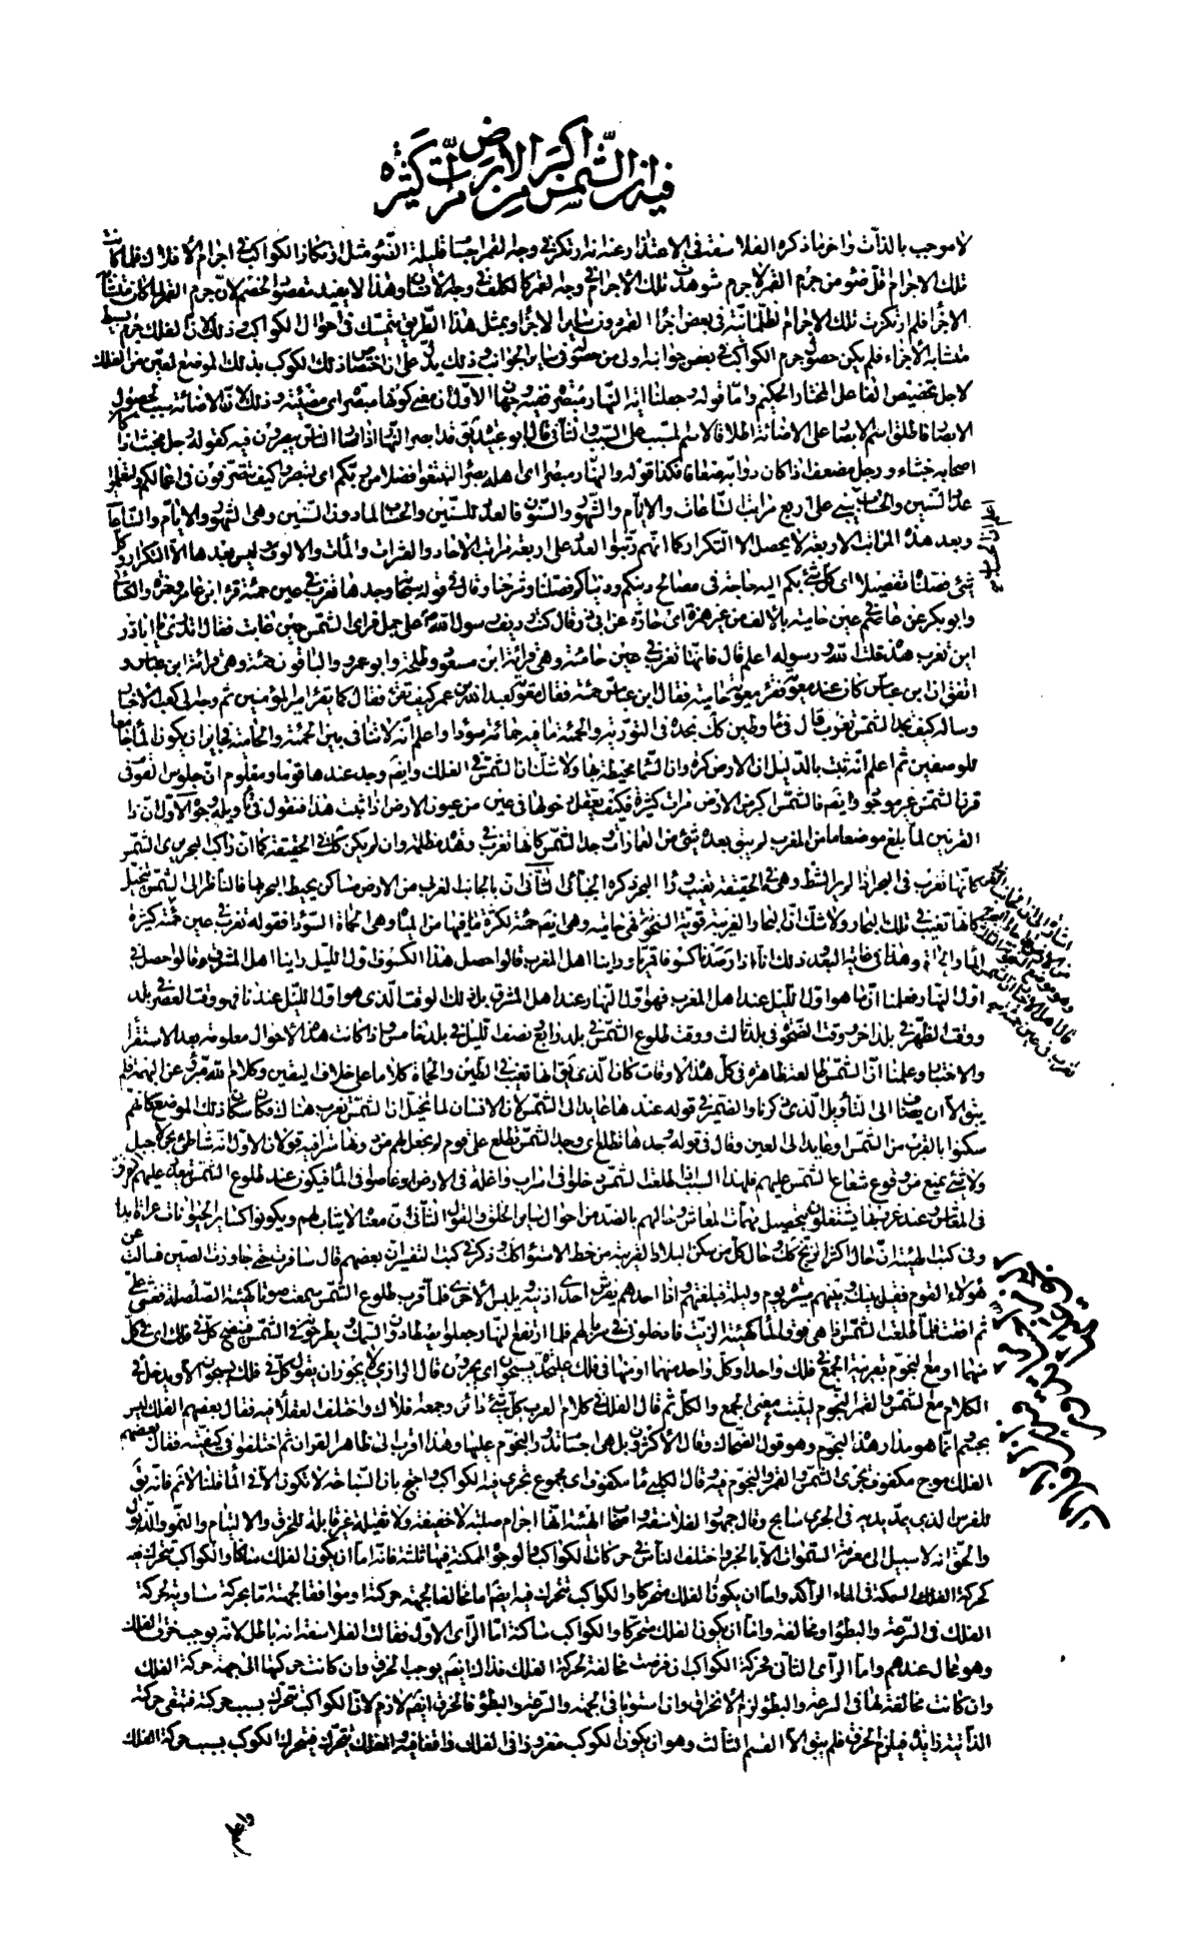 فيه ان الشمس اكبر من الارض مرات كثيرة
لا موجب بالذات واخر ما ذكره الفلاسفة في الاعتذار عنه انه ارتكز في وجه القمر اجسام قليلة الضوء مثل ارتكاز الكواكب في اجرام الافلاك فلما كانت
تلك الاجرام اقل ضوء من جرم القمر لا جرم شوهدت تلك الاجرام في وجه القمر كالكلف في وجه الانسان وهذا لا يفيد مقصود الخصم لان جرم القمر لما كان متشابه
الاجزاء فلم ارتكزت تلك الاجرام الظلمانية في بعض اجزاء القمر دون سائر الاجزاء وبمثل هذا الطريق يتمسك في احوال الكواكب وذلك ان الفلك جرم بسيط
متشابه الاجزاء فلم يكن حصول جرم الكواكب في بعض جوانبه اولى من حصوله في سائر الجوانب وذلك يدل على ان اختصاص ذلك الكوكب بذلك الموضع المعين من الفلك
لاجل تخصيص الفاعل المختار الحكيم واما قوله وجعلنا اية النهار مبصرة ففيه وجهان الاول ان معنى كونها مبصرة اي مضيئة وذلك لان الاضائة سبب لحصول
الابصار فاطلق اسم الابصار على الاضائة اطلاقا لاسم المسبب على السبب والثاني قال ابو عبيدة يق قد ابصر النهار اذا صار الناس يبصرون فيه كقوله رجل مخبث اذا كان
اصحابه خبثاء ورجل مضعف اذا كان دوابه ضعافا فكذا قوله والنهار مبصرا اي اهله بصراء لتبتغوا فضلا من ربكم اي لتبصروا كيف تتصرفون في اعمالكم ولتعلموا
عدد السنين والحساب يبنى على اربع مراتب الساعات والايام والشهور والسنون فالعدد للسنين والحساب لما دون السنين وهي الشهور والايام والساعات
وبعد هذه المراتب الاربعة لا يحصل الا التكرار كما انهم رتبوا العدد على اربعة مراتب الاحاد والعشرات والمئات والالوف وليس بعدها الا التكرار وكل
شيء فصلناه تفصيلا اي كل شيء بكم اليه حاجة في مصالح دينكم ودنياكم فصلناه وشرحناه وقال في قوله سبحانه وجدها تغرب في عين حمئة قرا ابن عامر وحمزة والكسائي
وابو بكر عن عاصم في عين حامية بالالف من غير همزة اي حارة عن ابي ذر قال كنت رديف رسول الله ص على جمل فراى الشمس حين غابت فقال اتدري يا ابا ذر
اين تغرب هذه قلت الله ورسوله اعلم قال فانها تغرب في عين حامئة وهي قرائة ابن مسعود وطلحة وابو عمرو والباقون حمئة وهي قرائة ابن عباس و
اتفق ان ابن عباس كان عند معوية فقرء معوية حامية فقال ابن عباس حمئة فقال معوية لعبد الله بن عمر كيف تقرء فقال كما يقرء امير المؤمنين ثم وجه الى كعب الاحبار
وساله كيف تجد الشمس تغرب قال في ماء وطين كذلك نجده في التورية والحمئة ما فيه حمائة سوداء واعلم انه لا تنافي بين الحمئة والحامية فجايز ان يكون الماء جامعا
للوصفين ثم اعلم انه ثبت بالدليل ان الارض كرة وان السماء محيطة بها ولا شك ان الشمس في الفلك وايضم وجد عندها قوما ومعلوم ان جلوس القوم في
قرب الشمس غير موجود وايضم فالشمس اكبر من الارض مرات كثيرة فكيف يعقل دخولها في عين من عيون الارض اذا ثبت هذا فنقول في تاويله وجوه الاول ان ذا
القرنين لما بلغ موضعا ما من المغرب لم يبق بعده شيء من العمارات وجد الشمس كانها تغرب في وهدة مظلمة وان لم يكن كذلك في الحقيقة كما ان راكب البحر يرى الشمس
كانها تغرب في البحر اذا لم ير الشط وهي في الحقيقة تغيب وراء البحر ذكره الجبائي الثاني ان بالجانب الغربي من الارض مساكن يحيط البحر بها فالناظر الى الشمس يتخيل
كانها تغيب في تلك البحار ولا شك ان البحار الغربية قوية السخونة فهي حامية وهي ايضم حمئة لكثرة ما فيها من الماء وهي حماة السوداء فقوله تغرب في عين حمئة كثيرة
الماء وهذا في غاية البعد وذلك انا اذا رصدنا كسوفا قمريا وراينا اهل المغرب قالوا حصل هذا الكسوف اول الليل وراينا اهل المشرق وقالوا حصل في
اول النهار فعلمنا ان ما هو اول الليل عند اهل المغرب فهو اول النهار عند اهل المشرق بل ذلك الوقت الذي هو اول الليل عندنا فهو وقت العصر في بلد
ووقت الظهر في بلد اخر ووقت الضحوة في بلد ثالث ووقت طلوع الشمس في بلد رابع ونصف الليل في بلد خامس واذا كانت هذه الاحوال معلومة بعد الاستقراء
والاختبار وعلمنا ان الشمس طالعة ظاهرة في كل هذه الاوقات كان الذي يق انها تغيب في الطين والحماة كلاما على خلاف اليقين وكلام الله مبرء عن التهمة فلم
يبق الا ان يصار الى التاويل الذي ذكرناه والضمير في قوله عندها عايد الى الشمس لان الانسان لما تخيل ان الشمس تغرب هناك فكان سكان ذلك الموضع كانهم
سكنوا بالقرب من الشمس او عايد الى العين وقال في قوله وجدها تطلع اي وجد الشمس تطلع على قوم لم نجعل لهم من دونها سترا فيه قولان الاول انه شاطئ بحر لا جبل
ولا شيء يمنع من وقوع شعاع الشمس عليهم فلهذا السبب اذا طلعت الشمس دخلوا في اسراب واغلة في الارض او غاصوا في الماء فيكون عند طلوع الشمس يتعذر عليهم التصرف
في المعاش وعند غروبها يشتغلون بتحصيل مهمات المعاش وحالهم بالضد من احوال ساير الخلق والقول الثاني ان معناه لا ثياب لهم ويكونوا كساير الحيوانات عراة ابدا
وفي كتب الهيئة ان حال اكثر الزنج كذلك وحال كل من سكن البلاد القريبة من خط الاستواء كذلك وذكر في كتب التفسير ان بعضهم قال سافرت حتى جاوزت الصين فسالت عن
هؤلاء القوم فقيل بينك وبينهم مسيرة يوم وليلة فبلغتهم واذا احدهم يفرش احدى اذنيه ويلبس الاخرى فلما قرب طلوع الشمس سمعت صوتا كهيئة الصلصلة فغشي علي
ثم افقت فلما طلعت الشمس اذا هي فوق الماء كهيئة الزيت فادخلونا في سربهم فلما ارتفع النهار وجعلوا يصطادون السمك ويطرحونه في الشمس فينضج كل في فلك اي كل
منهما او مع النجوم بقرينة الجمع في فلك واحد او كل واحد منهما او منها في فلك عليحدة يسبحون اي يجرون قال الرازي لا يجوز ان يقول كل في فلك يسبحون الا ويدخل في
الكلام مع الشمس والقمر النجوم ليثبت معنى الجمع والكل ثم قال الفلك في كلام العرب كل شيء دائر وجمعه افلاك واختلف العقلاء فيه فقال بعضهم الفلك ليس
بجسم انما هو مدار هذه النجوم وهو قول الضحاك وقال الاكثرون بل هي اجسام تدور النجوم عليها وهذا اقرب الى ظاهر القران ثم اختلفوا في كيفيته فقال بعضهم
الفلك موج مكفوف تجري الشمس والقمر والنجوم فيه وقال الكلبي ماء مكفوف اي مجموع تجري فيه الكواكب واحتج بان السباحة لا تكون الا في الماء قلنا لانم فانه يق
للفرس الذي يمد يديه في الجري سابح وقال جمهور الفلاسفة واصحاب الهيئة انها اجرام صلبة لا خفيفة ولا ثقيلة غير قابلة للخرق والالتيام والنمو والذبول
والحق انه لا سبيل الى معرفة السموات الا بالخبر واختلف الناس في حركات الكواكب والوجوه الممكنة فيها ثلثة فانه اما ان يكون الفلك ساكنا والكواكب تتحرك فيه
كحركة السمكة في الماء الراكد واما ان يكون الفلك متحركا والكواكب تتحرك فيه ايضم اما مخالفا لجهة حركته او موافقا لجهته اما بحركة مساوية لحركة
الفلك في السرعة والبطؤ او مخالفة واما ان يكون الفلك متحركا والكواكب ساكنة اما الراى الاول فقالت الفلاسفة انه باطل لانه يوجب خرق الفلك
وهو محال عندهم واما الراى الثاني فحركة الكواكب ان فرضت مخالفة لحركة الفلك فذاك ايضم يوجب الخرق وان كانت حركتها الى جهة حركة الفلك
وان كانت مخالفة لها في السرعة والبطؤ لزم الانخراق وان استويا في الجهة والسرعة والبطؤ فالخرق ايضم لازم لان الكواكب تتحرك بسبب حركة فتبقى حركته
الذاتية زايدة فيلزم الخرق فلم يبق الا القسم الثالث وهو ان يكون الكوكب مغروزا في الفلك واقفا فيه والفلك يتحرك فيتحرك الكوكب بسبب حركة الفلك